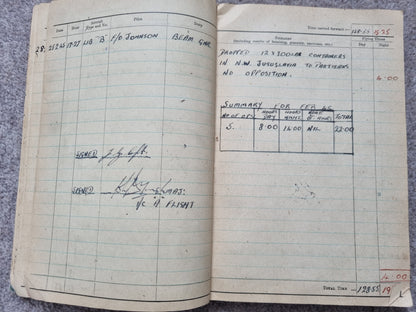 Date
Hour
Aircraft
Type and No.
Pilot
Duty
28. 25.2.45 17.27 LIB "B" F/O JOHNSON BEAM GNR.
SIGNED
SIGNED
MAJ.
O/C "A" FLIGHT
Time carried forward:—
REMARKS
(Including results of bombing, gunnery, exercises, etc.)
Flying Times
Day
Night
DROPPED 12 X 200LB CONTAINERS
IN N.W. JUGUSLAVIA TO PARTISANS
NO OPPOSITION.
6.00
SUMMARY FOR FEB 45
No OF OPS
HOURS DAY
HOURS NIGHT
TOTAL
5.
8:00
14:00
NIL
22:00
TOTAL TIME